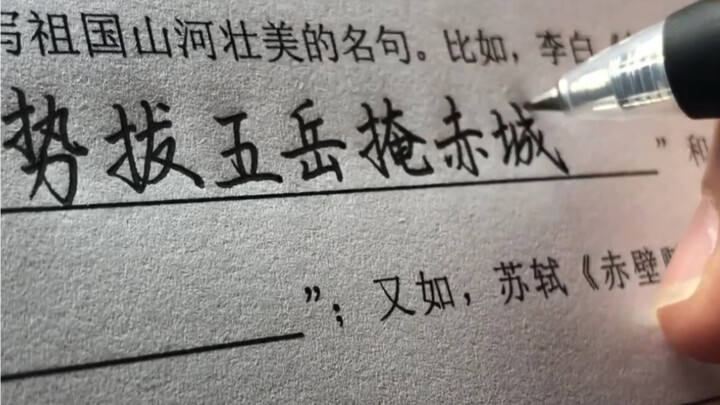 写祖国山河壮美的名句。比如，李白《
势拔五岳掩赤城”和
”；又如，苏轼《赤壁